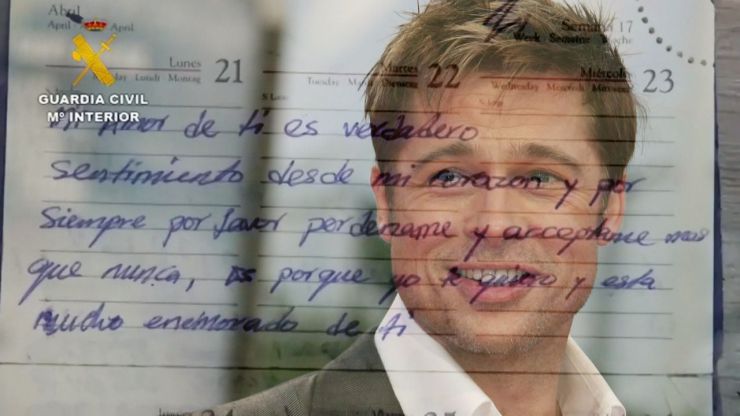 Abril
April - April
Semana 17
Week Semaine Woche
Lunes
Lundi Montag 21
Martes
Tuesday Mardi Dienstag 22
Miércoles
Wednesday Mercredi Mittwoch 23
GUARDIA CIVIL
Mº INTERIOR
mi amor de ti es verdadero
sentimiento desde mi corazon y por
siempre por favor perdoname y acceptame mas
que nunca, es porque yo te quiero y esta
mucho enemorado de ti